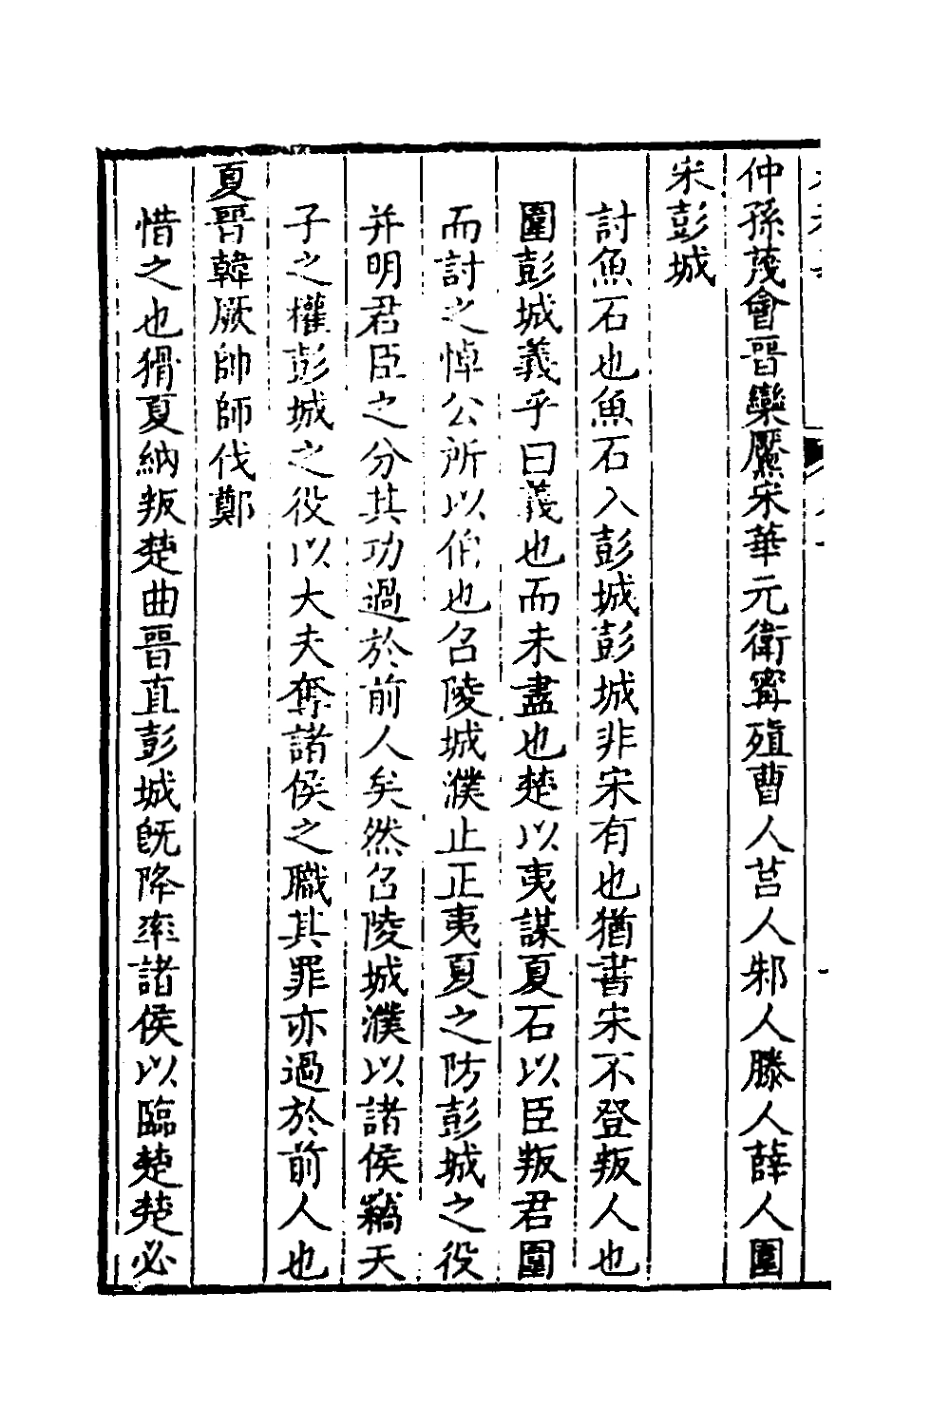 仲孫蔑會晉欒黶宋華元衛甯殖曹人莒人邾人滕人薛人圍
宋彭城
討魚石也魚石入彭城彭城非宋有也猶書宋不登叛人也
圍彭城義乎曰義也而未盡也楚以夷謀夏石以臣叛君圍
而討之悼公所以伯也召陵城濮止正夷夏之防彭城之役
并明君臣之分其功過於前人矣然召陵城濮以諸侯竊天
子之權彭城之役以大夫奪諸侯之職其罪亦過於前人也
夏晉韓厥帥師伐鄭
惜之也猾夏納叛楚曲晉直彭城旣降率諸侯以臨楚楚必